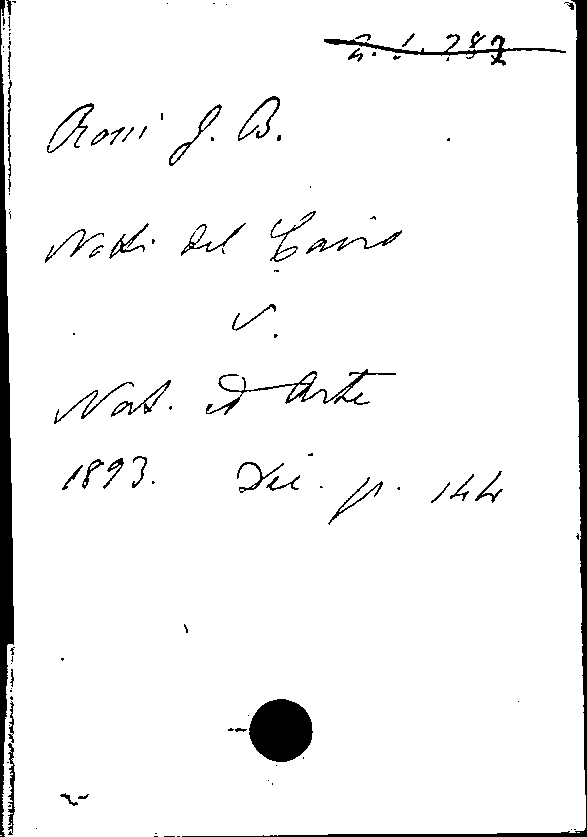 2. 1. 287
Rossi J. B.
Notti del Cairo
V.
Nat. ed Arte
1893. Dic. p. 144